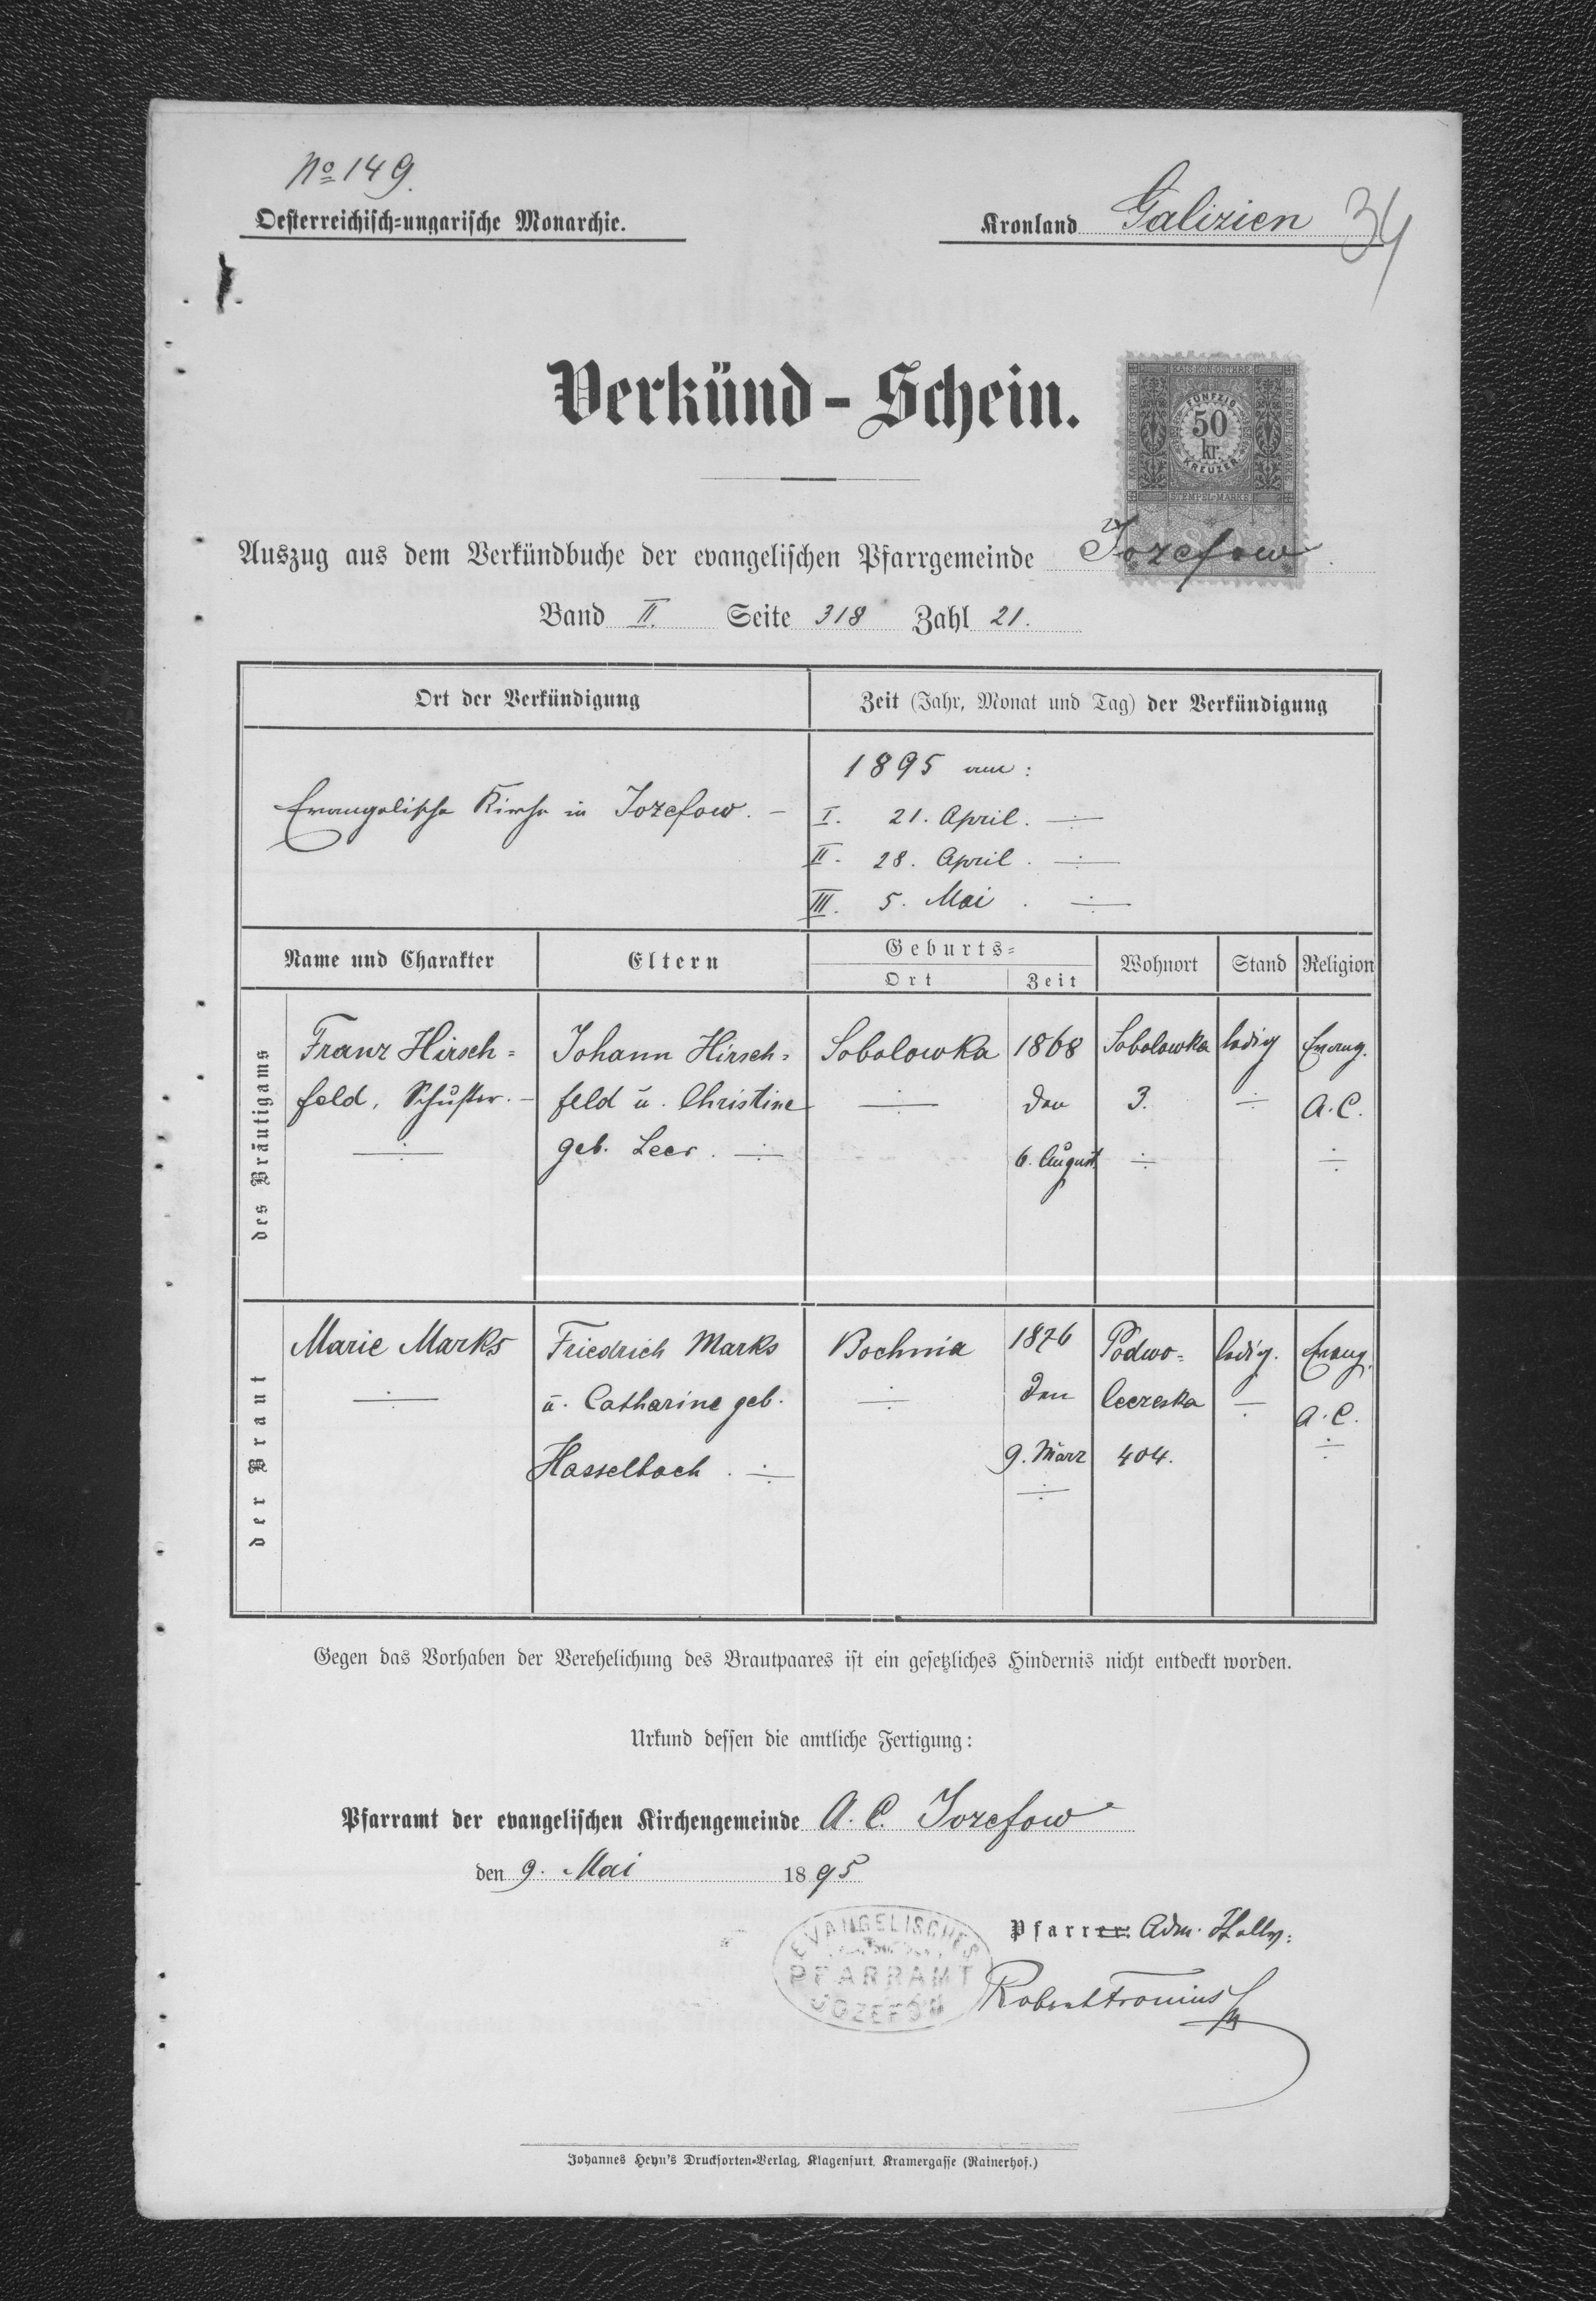 No 149.
Oesterreichisch=ungarische Monarchie.
Kronland Galizien 34
Verkünd-Schein.
KAIS. KÖN. ÖSTERR.
FÜNFZIG
50
kr.
KREUZER
STEMPEL-MARKE
Auszug aus dem Verkündbuche der evangelischen Pfarrgemeinde Jozefow.
Band II. Seite 318 Zahl 21.
Ort der Verkündigung
Zeit (Jahr, Monat und Tag) der Verkündigung
Evangelische Kirche in Jozefow. –
1895 am:
I. 21. April.
II. 28. April.
III. 5. Mai.
Name und Charakter
Eltern
Geburts=
Ort
Zeit
Wohnort
Stand
Religion
des Bräutigams
Franz Hirsch=
feld, Schuster. –
Johann Hirsch=
feld u. Christine
geb. Leer.
Sobolowka
1868
den
6. August
Sobolowka
3.
ledig
Evang.
A. C.
der Braut
Marie Marks
Friedrich Marks
u. Catharine geb.
Hasselbach.
Bochnia
1876
den
9. März
Podwo=
leczeska
404.
ledig.
Evang.
A. C.
Gegen das Vorhaben der Verehelichung des Brautpaares ist ein gesetzliches Hindernis nicht entdeckt worden.
Urkund dessen die amtliche Fertigung:
Pfarramt der evangelischen Kirchengemeinde A. C. Jozefow
den 9. Mai 1895
Pfarrer: Adm. Stellv:
EVANGELISCHES
PFARRAMT
JOZEFOW
Robert Fronius
Johannes Heyn's Drucksorten=Verlag, Klagenfurt, Kramergasse (Rainerhof.)